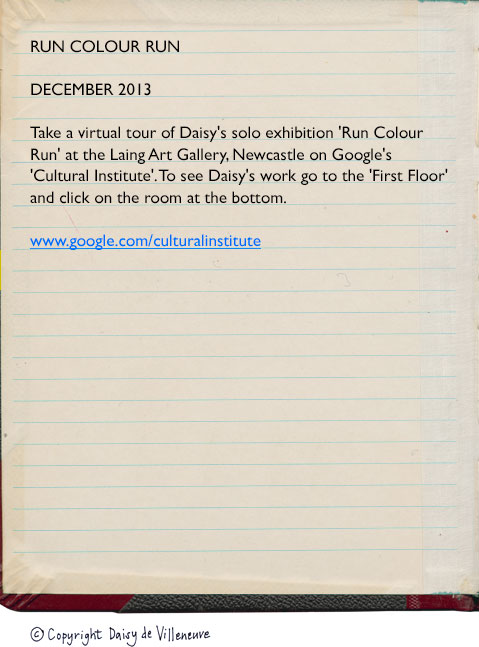 RUN COLOUR RUN
DECEMBER 2013
Take a virtual tour of Daisy's solo exhibition 'Run Colour
Run' at the Laing Art Gallery, Newcastle on Google's
'Cultural Institute'. To see Daisy's work go to the 'First Floor'
and click on the room at the bottom.
www.google.com/culturalinstitute
© Copyright Daisy de Villeneuve